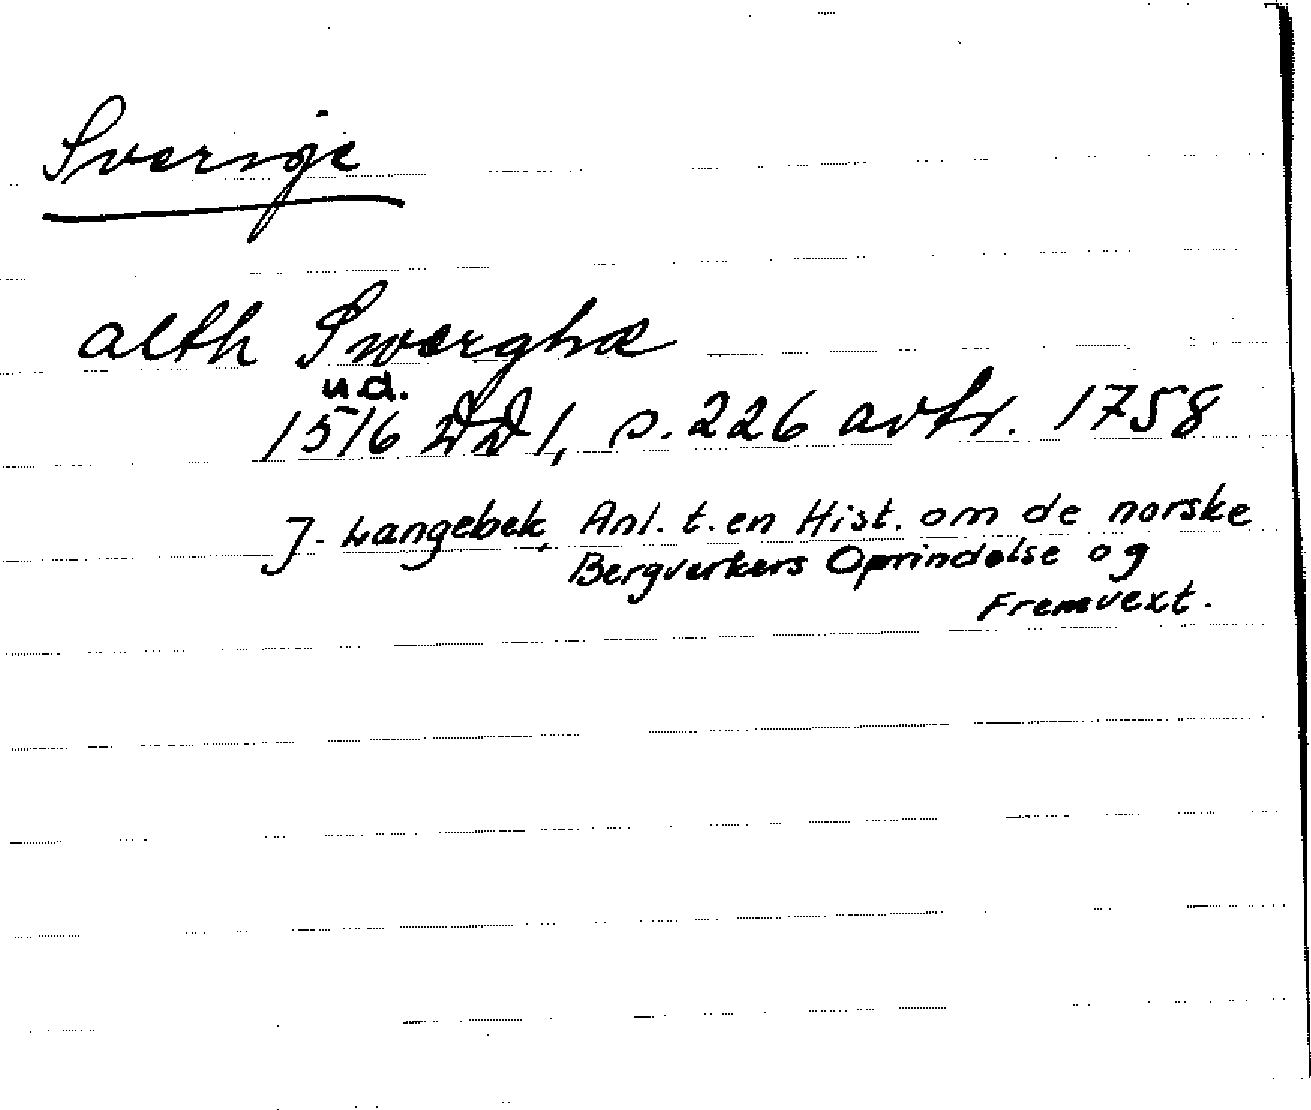 Sverige
alth Swærghæ
u.d.
1516 DD 1, s. 226 avtr. 1758
J. Langebek, Anl. t. en Hist. om de norske
Bergverkers Oprindelse og
Fremvext.